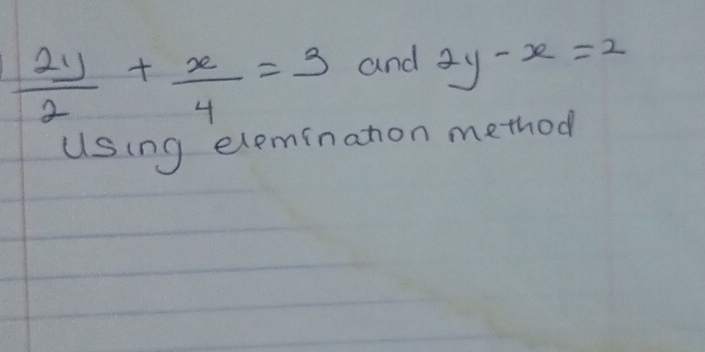 2y/2 + x/4 = 3 and 2y - x = 2
Using elemination method